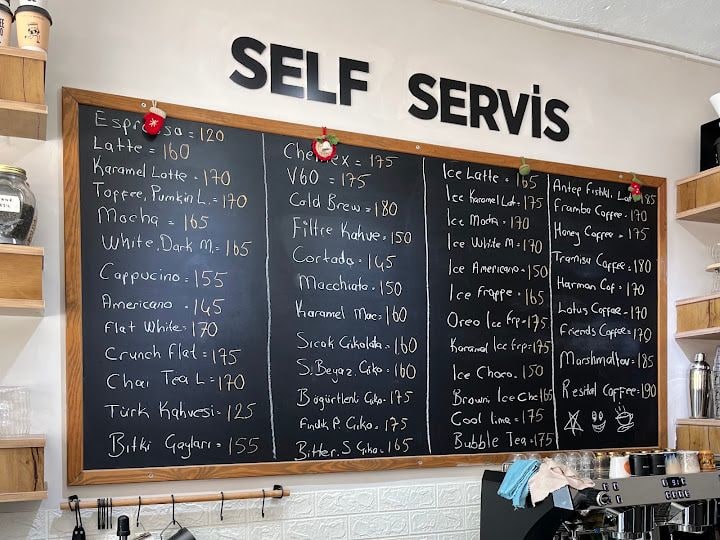 SELF SERVİS
Espresso = 120
Latte = 160
Karamel Latte = 170
Toffee, Pumkin L. = 170
Mocha = 165
White, Dark M. = 165
Cappucino = 155
Americano = 145
Flat White = 170
Crunch Flat = 175
Chai Tea L = 170
Türk Kahvesi = 125
Bitki Çayları = 155
Chemex = 175
V60 = 175
Cold Brew = 180
Filtre Kahve = 150
Cortado = 145
Macchiato = 150
Karamel Mac = 160
Sıcak Çikolata = 160
S. Beyaz. Çiko = 160
Böğürtlenli Çiko = 175
Fındık P. Çiko = 175
Bitter. S Çiko = 165
Ice Latte = 165
Ice Karamel Lat = 175
Ice Mocha = 170
Ice White M = 170
Ice Americano = 150
Ice Frappe = 165
Oreo Ice Frp = 175
Karamel Ice Frp = 175
Ice Choco = 150
Browni Ice Cho 165
Cool lime = 175
Bubble Tea = 175
Antep Fıstıklı Lat 185
Frambo Coffee = 170
Honey Coffee = 175
Tramisu Coffee = 180
Harman Cof = 170
Lotus Coffee = 170
Friends Coffee = 170
Marshmallow = 185
Resital Coffee = 190